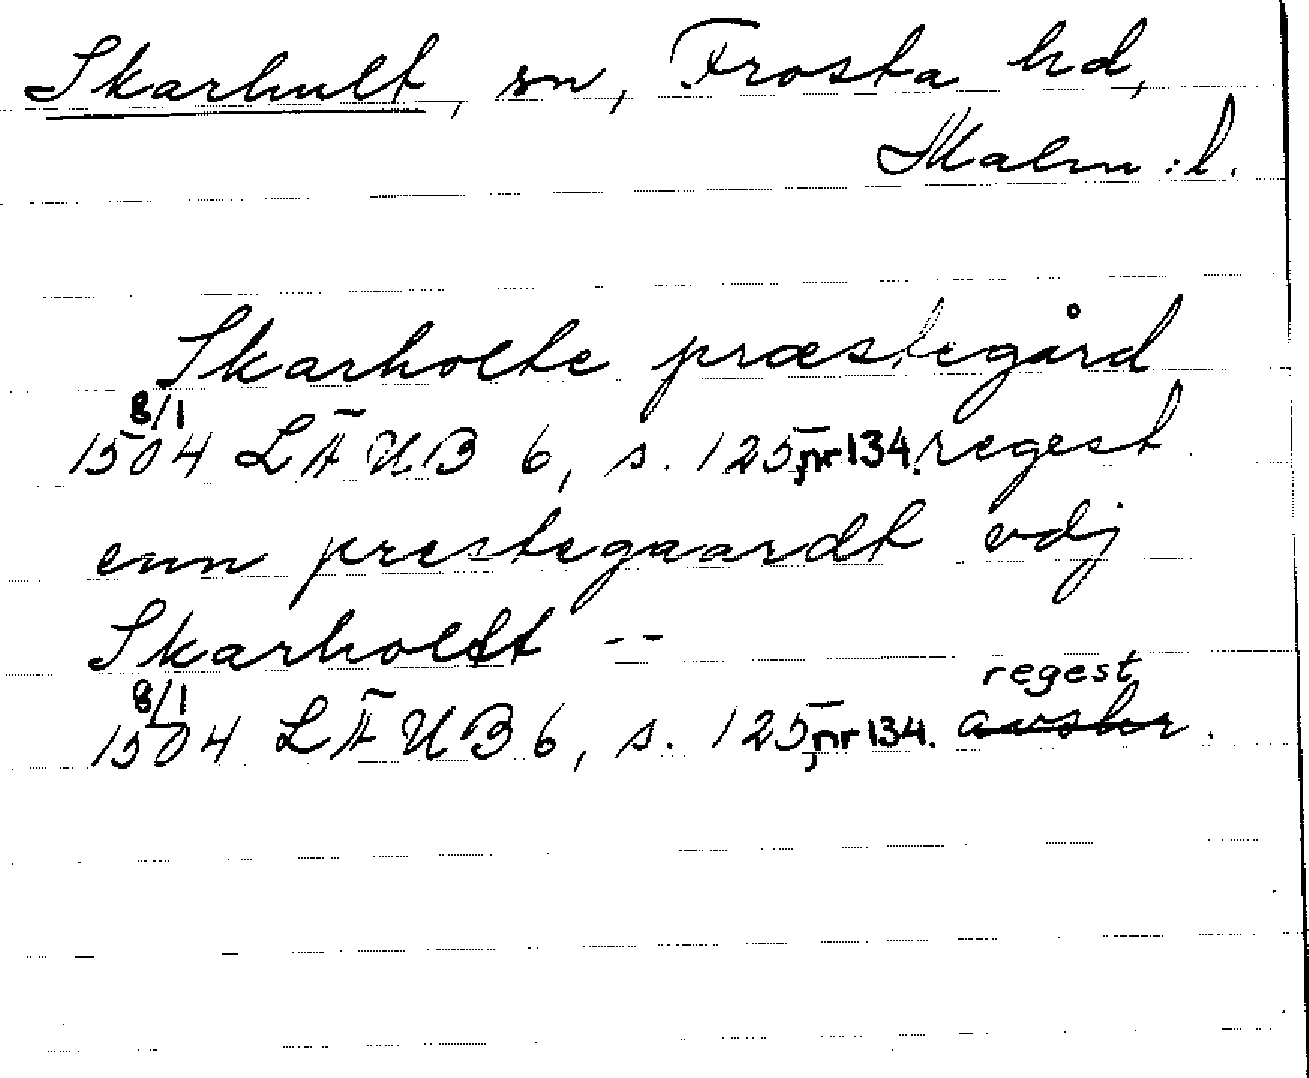 Skarhult, sn, Frosta hd,
Malm:l.
Skarholte præstegård
8/1
1504 LÄUB 6, s. 125, nr 134. regest
enn prestegaardt vdj
Skarholdt --
regest
8/1
1504 LÄUB 6, s. 125, nr 134. avskr.